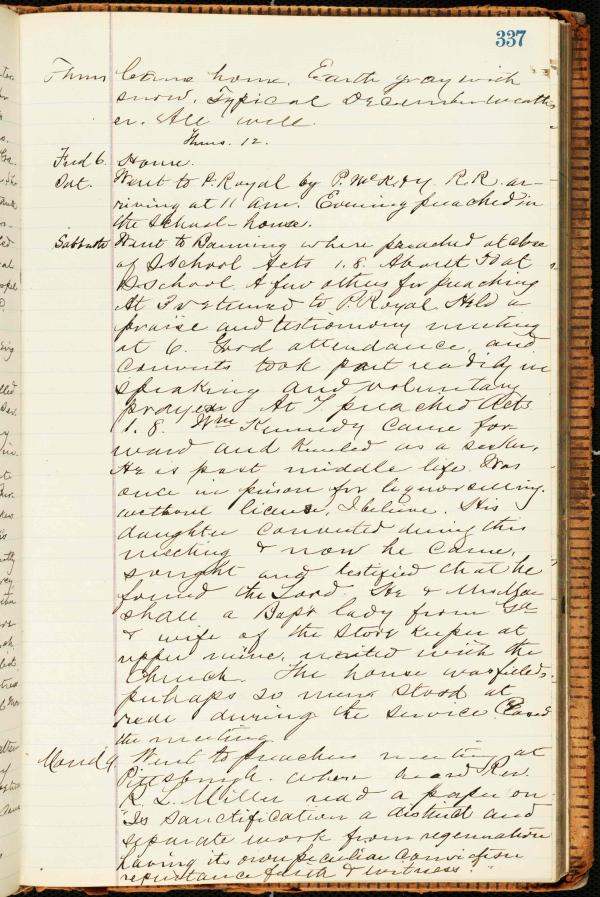 337
Thurs Came home. Earth gray with
snow. Typical December weath-
er. All well.
Thurs. 12.
Frid 6. Home.
Sat. Went to P. Royal by P. McK. & Y. R.R. ar-
riving at 11 am. Evening preached in
the School-house.
Sabbath Went to Banning where preached at close
of S. School Acts 1.8. About 50 at
S. School. A few others for preaching
At 3 returned to P. Royal. Held a
praise and testimony meeting
at 6. Good attendance, and
converts took part readily in
speaking and voluntary
prayer. At 7 preached Acts
1.8. Wm Kennedy came for
ward and kneeled as a seeker,
He is past middle life. Was
once in prison for liquor selling
without license, I believe. His
daughter converted during this
meeting & now he came,
sought and testified that he
found the Lord. He & Mrs Mar
shall a Bapt lady from
& wife of the Store Keeper at
upper mine, united with the
Church. The house was filled,
perhaps 20 men stood at
rear during the service. Closed
the meeting
Mond 9. Went to preachers meeting at
Pittsburgh. where heard Rev.
R. L. Miller read a paper on
"Is sanctification a distinct and
separate work from regeneration
having its own peculiar conviction
repentance faith & witness?"